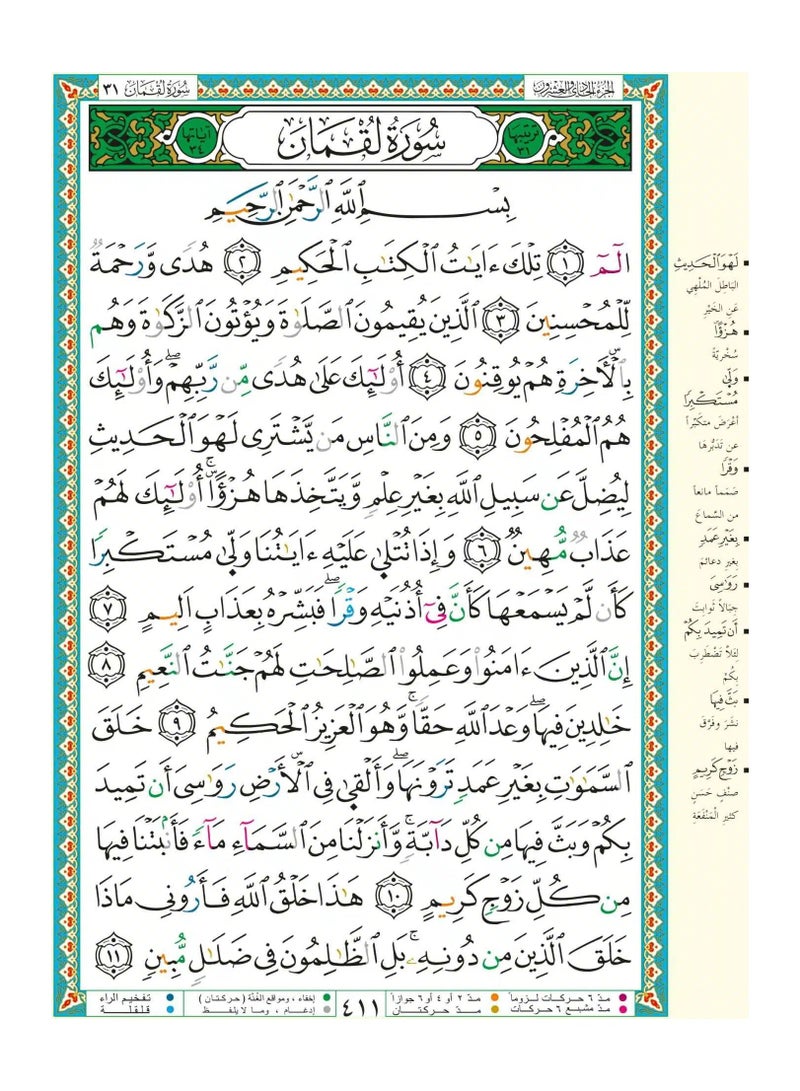 سُورَةُ لُقْمَانَ ٣١
الجُزْءُ الحَادِي وَالعِشْرُونَ
آيَاتُهَا ٣٤
سُورَةُ لُقْمَانَ
تَرْتِيبُهَا ٣١
بِسْمِ ٱللَّهِ ٱلرَّحْمَٰنِ ٱلرَّحِيمِ
الٓمٓ ۝١ تِلْكَ ءَايَٰتُ ٱلْكِتَٰبِ ٱلْحَكِيمِ ۝٢ هُدًى وَرَحْمَةً
لِّلْمُحْسِنِينَ ۝٣ ٱلَّذِينَ يُقِيمُونَ ٱلصَّلَوٰةَ وَيُؤْتُونَ ٱلزَّكَوٰةَ وَهُم
بِٱلْأَخِرَةِ هُمْ يُوقِنُونَ ۝٤ أُو۟لَٰٓئِكَ عَلَىٰ هُدًى مِّن رَّبِّهِمْ ۖ وَأُو۟لَٰٓئِكَ
هُمُ ٱلْمُفْلِحُونَ ۝٥ وَمِنَ ٱلنَّاسِ مَن يَشْتَرِى لَهْوَ ٱلْحَدِيثِ
لِيُضِلَّ عَن سَبِيلِ ٱللَّهِ بِغَيْرِ عِلْمٍ وَيَتَّخِذَهَا هُزُوًا ۚ أُو۟لَٰٓئِكَ لَهُمْ
عَذَابٌ مُّهِينٌ ۝٦ وَإِذَا تُتْلَىٰ عَلَيْهِ ءَايَٰتُنَا وَلَّىٰ مُسْتَكْبِرًا
كَأَن لَّمْ يَسْمَعْهَا كَأَنَّ فِىٓ أُذُنَيْهِ وَقْرًا ۖ فَبَشِّرْهُ بِعَذَابٍ أَلِيمٍ ۝٧
إِنَّ ٱلَّذِينَ ءَامَنُوا۟ وَعَمِلُوا۟ ٱلصَّٰلِحَٰتِ لَهُمْ جَنَّٰتُ ٱلنَّعِيمِ ۝٨
خَٰلِدِينَ فِيهَا ۖ وَعْدَ ٱللَّهِ حَقًّا ۚ وَهُوَ ٱلْعَزِيزُ ٱلْحَكِيمُ ۝٩ خَلَقَ
ٱلسَّمَٰوَٰتِ بِغَيْرِ عَمَدٍ تَرَوْنَهَا ۖ وَأَلْقَىٰ فِى ٱلْأَرْضِ رَوَٰسِىَ أَن تَمِيدَ
بِكُمْ وَبَثَّ فِيهَا مِن كُلِّ دَآبَّةٍ ۚ وَأَنزَلْنَا مِنَ ٱلسَّمَآءِ مَآءً فَأَنۢبَتْنَا فِيهَا
مِن كُلِّ زَوْجٍ كَرِيمٍ ۝١٠ هَٰذَا خَلْقُ ٱللَّهِ فَأَرُونِى مَاذَا
خَلَقَ ٱلَّذِينَ مِن دُونِهِۦ ۚ بَلِ ٱلظَّٰلِمُونَ فِى ضَلَٰلٍ مُّبِينٍ ۝١١
لَهْوَ ٱلْحَدِيثِ
البَاطِلَ المُلْهِي
عَنِ الخَيْرِ
هُزُوًا
سُخْرِيَّةً
وَلَّىٰ
مُسْتَكْبِرًا
أعْرَضَ متكبّراً
عن تَدَبُّرِهَا
وَقْرًا
صَمَماً مانعاً
من السَّماعِ
بِغَيْرِ عَمَدٍ
بغير دعائم
رَوَٰسِىَ
جِبَالاً ثوابِتَ
أَن تَمِيدَ بِكُمْ
لئلاّ تَضْطَرِبَ
بِكُمْ
بَثَّ فِيهَا
نشَرَ وفرَّقَ
فيها
زَوْجٍ كَرِيمٍ
صنْفٍ حَسَنٍ
كثيرِ الْمَنْفَعَةِ
مدّ ٦ حركات لزوماً
مدّ ٢ أو ٤ أو ٦ جوازاً
مدّ مشبع ٦ حركات
مدّ حركتان
٤١١
إخفاء، ومواقع الغُنَّة (حركتان)
تفخيم الراء
إدغام، وما لا يلفظ
قلقلة